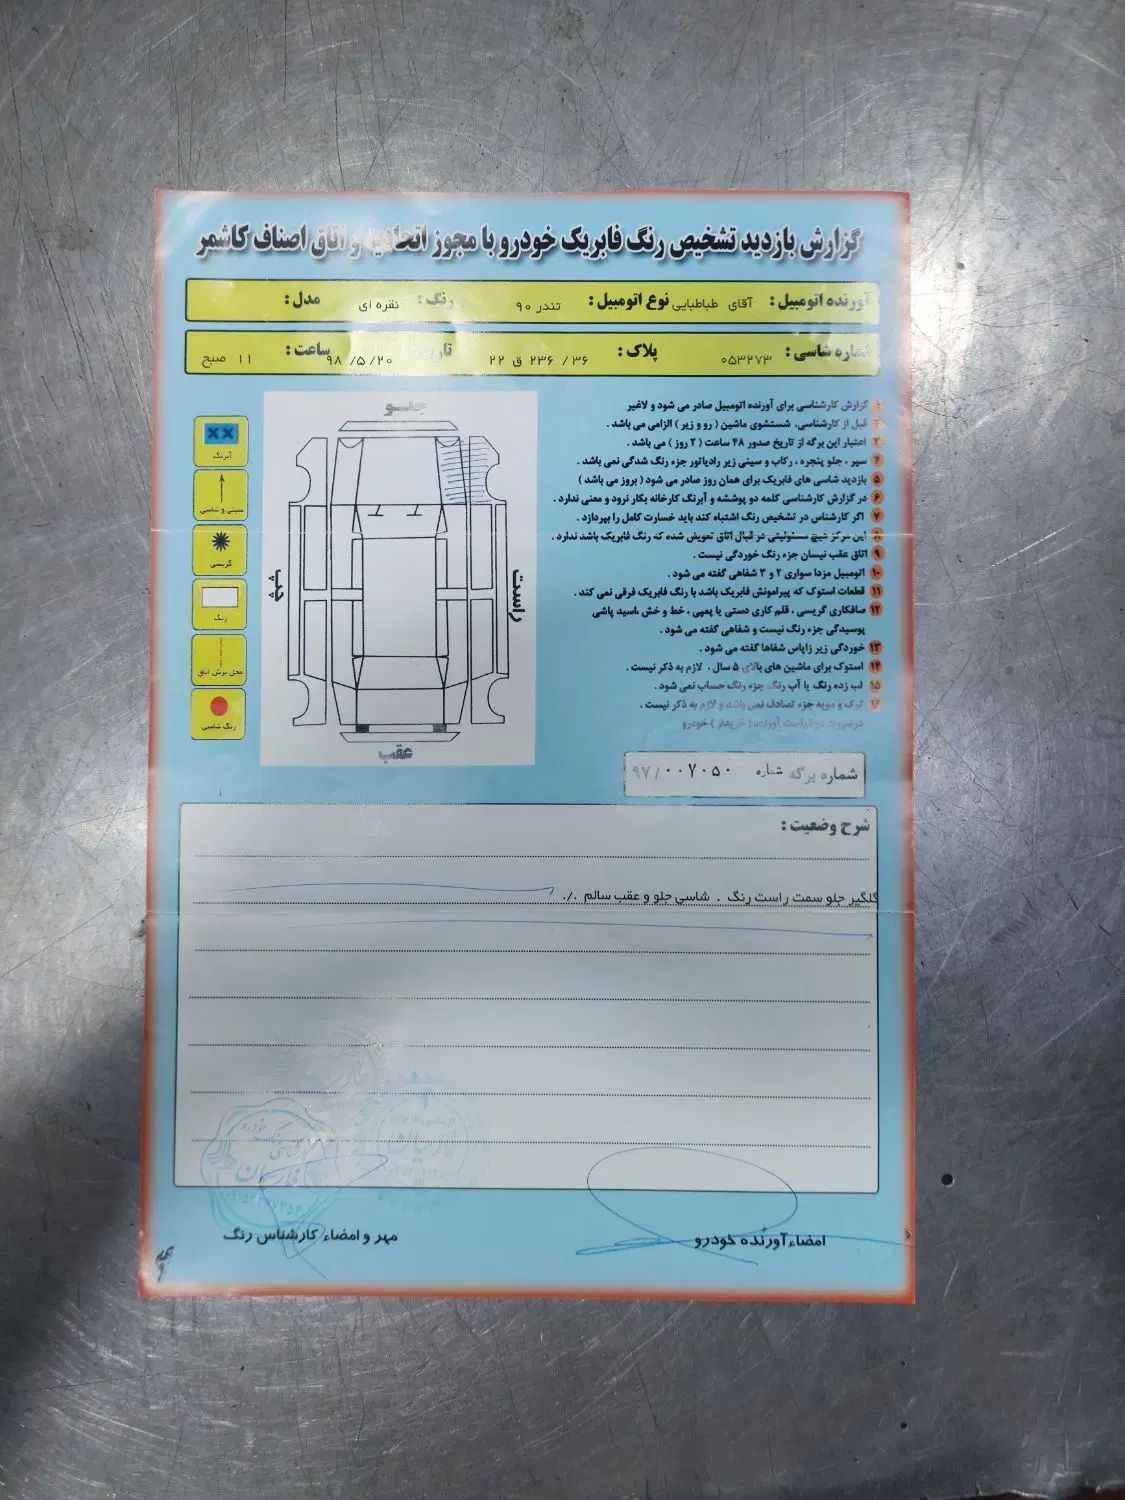 گزارش بازدید تشخیص رنگ فابریک خودرو با مجوز اتحادیه و اتاق اصناف کاشمر
آورنده اتومبیل : آقای طباطبایی نوع اتومبیل : تندر ۹۰ رنگ : نقره ای مدل :
شماره شاسی : ۰۵۳۲۷۳ پلاک : ۳۶ / ۲۳۶ ق ۲۲ تاریخ ۹۸/۵/۲۰ ساعت : ۱۱ صبح
۱ گزارش کارشناسی برای آورنده اتومبیل صادر می شود و لاغیر
۲ قبل از کارشناسی، شستشوی ماشین ( رو و زیر ) الزامی می باشد .
۳ اعتبار این برگه از تاریخ صدور ۴۸ ساعت ( ۲ روز ) می باشد .
۴ سپر ، جلو پنجره ، رکاب و سینی زیر رادیاتور جزء رنگ شدگی نمی باشد .
۵ بازدید شاسی های فابریک برای همان روز صادر می شود ( بروز می باشد )
۶ در گزارش کارشناسی کلمه دو پوششه و آبرنگ کارخانه بکار نرود و معنی ندارد .
۷ اگر کارشناس در تشخیص رنگ اشتباه کند باید خسارت کامل را بپردازد .
۸ این مرکز هیچ مسئولیتی در قبال اتاق تعویض شده که رنگ فابریک باشد ندارد .
۹ اتاق عقب نیسان جزء رنگ خوردگی نیست .
۱۰ اتومبیل مزدا سواری ۲ و ۳ شفاهی گفته می شود .
۱۱ قطعات استوک که پیرامونش فابریک باشد با رنگ فابریک فرقی نمی کند .
۱۲ صافکاری گریسی ، قلم کاری دستی یا پمپی ، خط و خش ،اسید پاشی
پوسیدگی جزء رنگ نیست و شفاهی گفته می شود .
۱۳ خوردگی زیر زاپاس شفاها گفته می شود .
۱۴ استوک برای ماشین های بالای ۵ سال ، لازم به ذکر نیست .
۱۵ لب زده رنگ یا آب رنگ جزء رنگ حساب نمی شود .
۱۶ ترک و مویه جزء تصادف نمی باشد و لازم به ذکر نیست .
درصورت درخواست آورنده ( خریدار ) خودرو
جلو
چپ
راست
عقب
آبرنگ
سینی و شاسی
گریسی
رنگ
محل برش اتاق
رنگ شاسی
شماره برگه شماره ۹۷/۰۰۷۰۵۰
شرح وضعیت :
گلگیر جلو سمت راست رنگ . شاسی جلو و عقب سالم ./.
امضاء آورنده خودرو
مهر و امضاء کارشناس رنگ